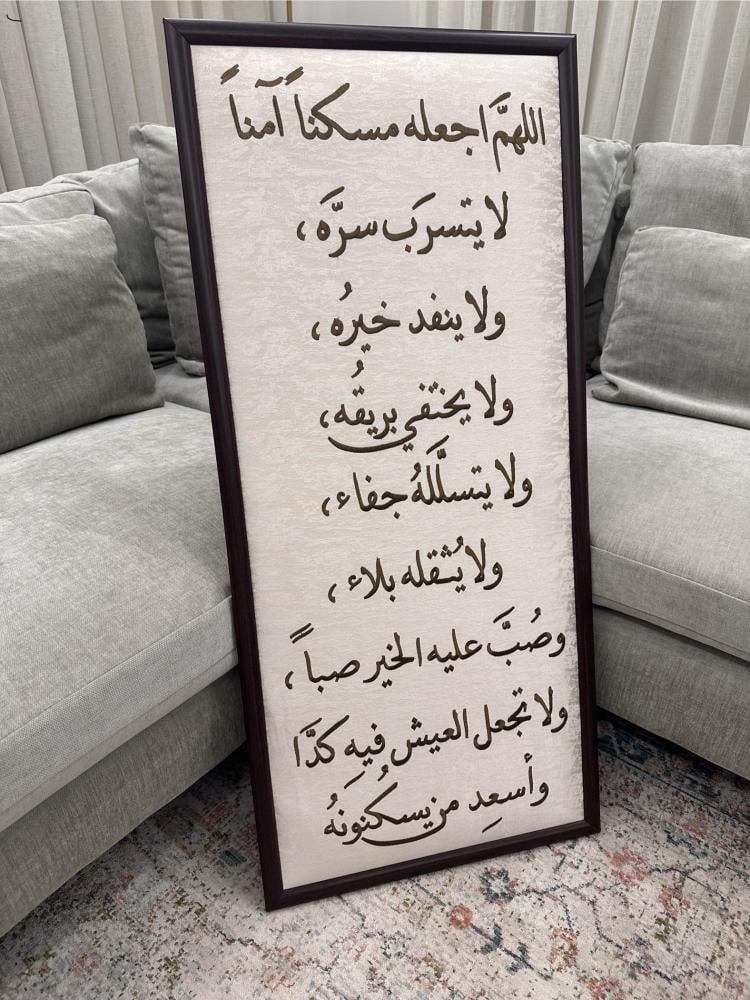 اللهمَّ اجعله مسكناً آمناً
لا يتسرَب سرَّه ،
ولا ينفد خيرُه ،
ولا يختفي بريقُه ،
ولا يتسلَّلهُ جفاء ،
ولا يُثقله بلاء ،
وصُبَّ عليه الخير صباً ،
ولا تجعل العيش فيهِ كدَّا
وأسعِد من يسكُنونَهُ